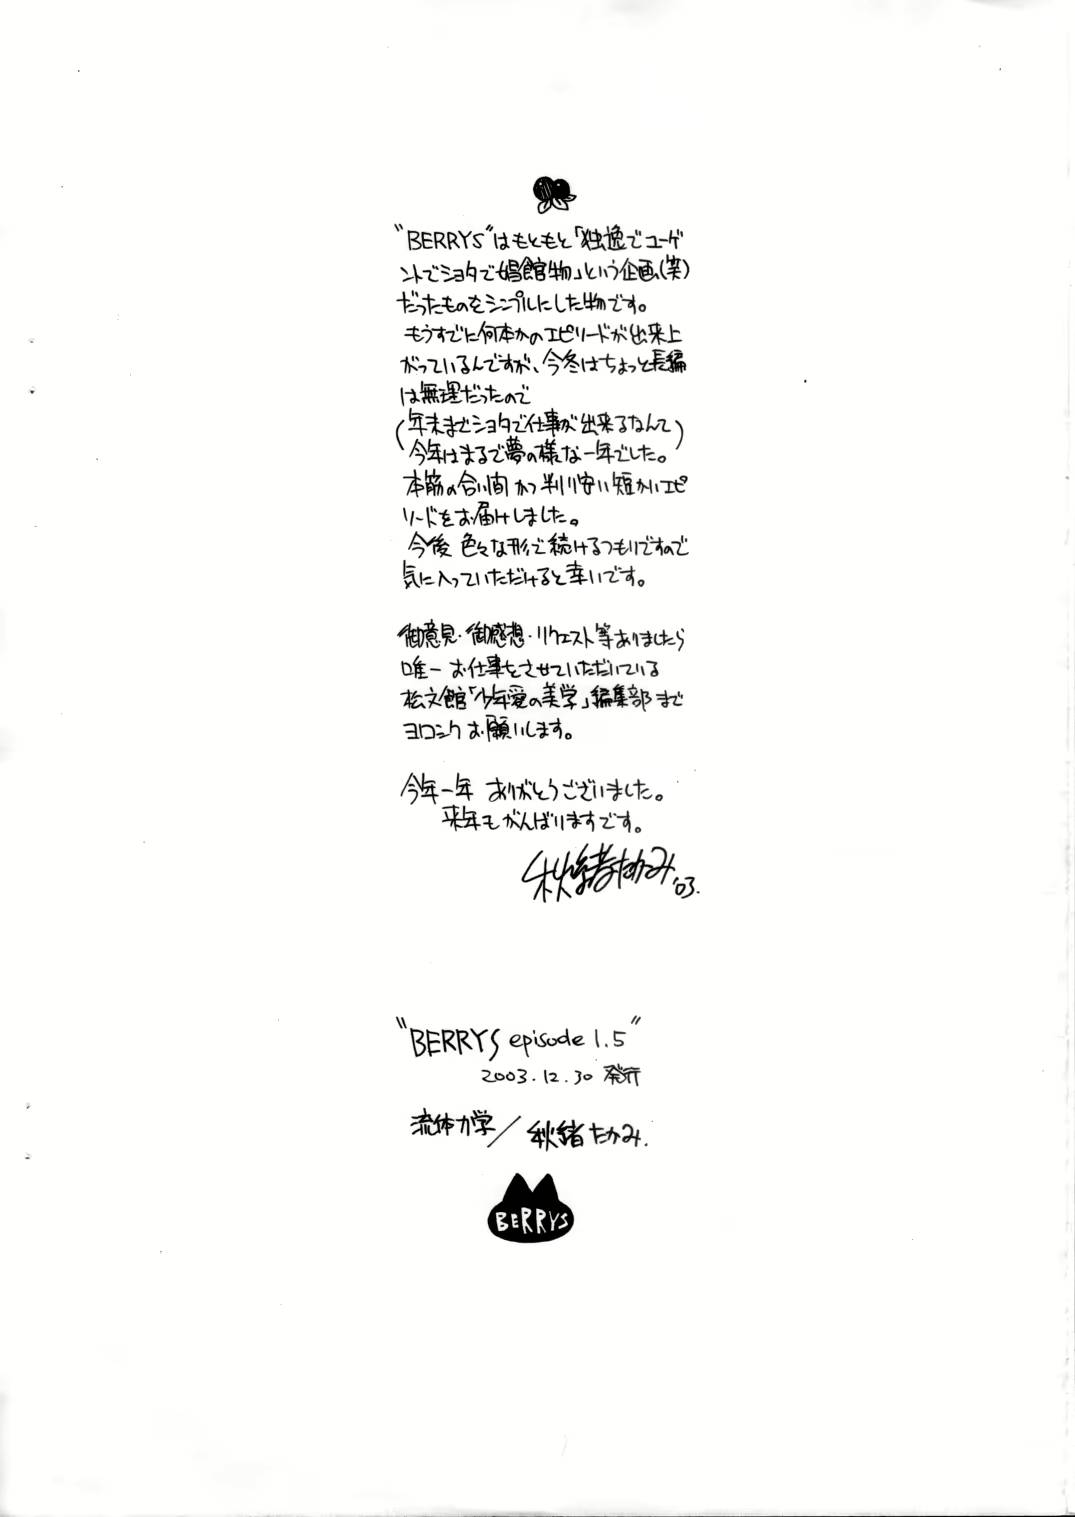 "BERRYS"はもともと「独逸でユーゲ
ントでショタで娼館物」という企画(笑)
だったものをシンプルにした物です。
もうすでに何本かのエピソードが出来上
がっているんですが、今冬はちょっと長編
は無理だったので
(年末までショタで仕事が出来るなんて
今年はまるで夢の様な一年でした。)
本筋の合い間かつ判り安い短かいエピ
ソードをお届けしました。
今後 色々な形で続けるつもりですので
気に入っていただけると幸いです。
御意見・御感想・リクエスト等ありましたら
唯一 お仕事をさせていただいている
松文館「少年愛の美学」編集部まで
ヨロシク お願いします。
今年一年 ありがとうございました。
来年もがんばりますです。
秋緒たかみ '03.
"BERRYS episode 1.5"
2003.12.30 発行
流体力学/秋緒たかみ.
BERRYS